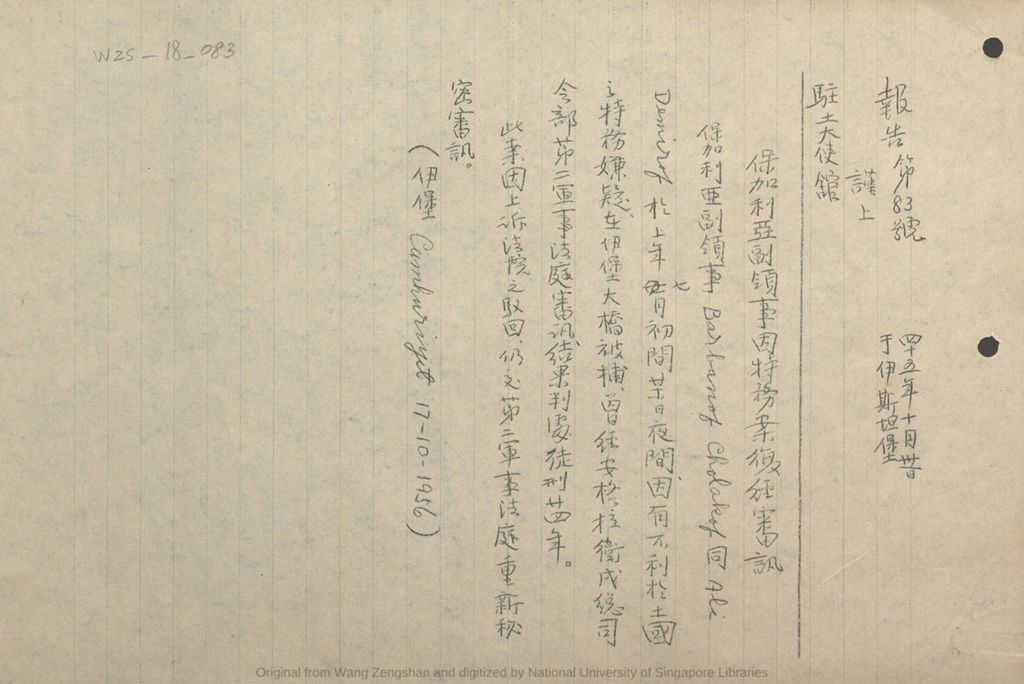 WZS-18-083
報告第83號
四十五年十月卅日
于伊斯坦堡
謹上
駐土大使館
保加利亞副領事因特務案復經審訊
保加利亞副領事 Barbanof Cholakof 同 Ali
Demirof 於上年七月初間某日夜間,因有不利於土國
之特務嫌疑,在伊堡大橋被捕,曾經安格拉衛戍總司
令部第二軍事法庭審訊結果判處徒刑廿四年。
此案因上訴法院之駁回,仍交第二軍事法庭重新秘
密審訊。
(伊堡 Cumhuriyet 17-10-1956)
Original from Wang Zengshan and digitized by National University of Singapore Libraries